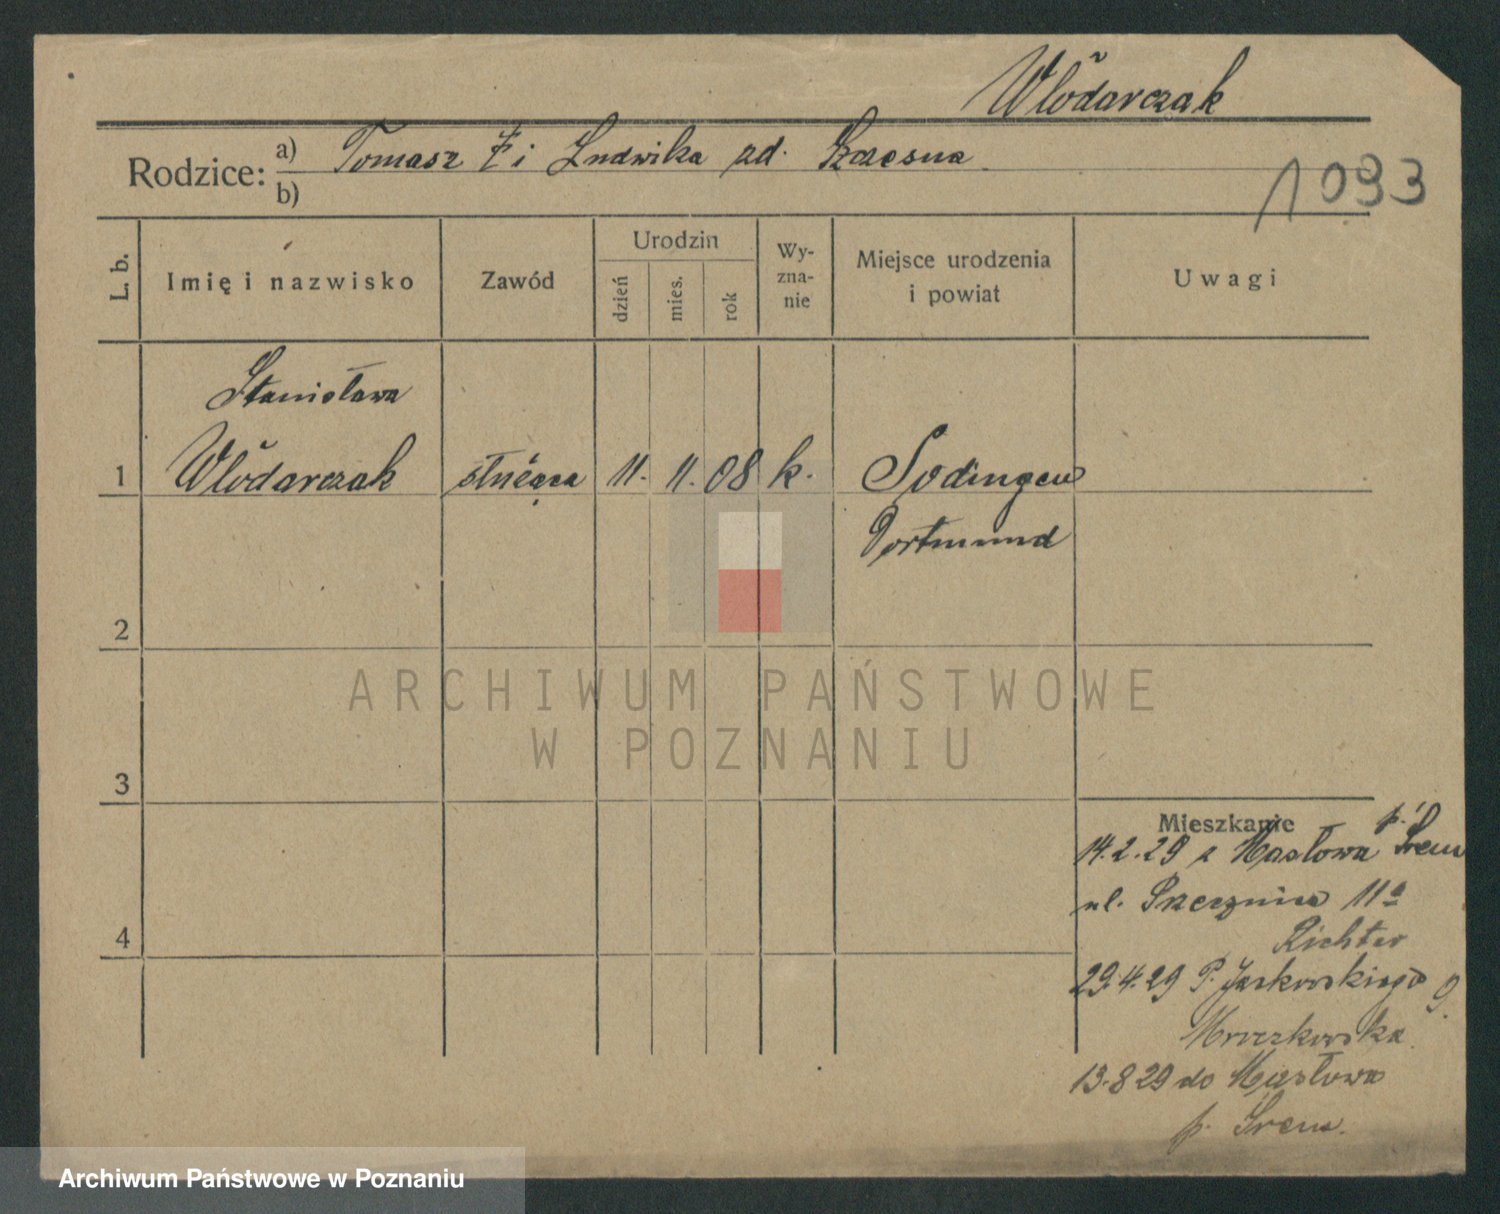 Włodarczak
Rodzice: a) Tomasz i Ludwika zd. Szczesna
b)
1093
L. b.
Imię i nazwisko
Zawód
Urodzin
dzień
mies.
rok
Wy-
zna-
nie
Miejsce urodzenia
i powiat
Uwagi
Stanisława
1 Włodarczak służąca 11. 11. 08 k. Sodingen
Dortmund
2
ARCHIWUM PAŃSTWOWE
W POZNANIU
3
Mieszkanie
14.2.29 z Masłowa p. Śrem
ul. 11a
Richter
4
29.4.29 P. Jackowskiego 9.
Mroczkowska
13.8 29 do Masłowa
p. Śrem.
Archiwum Państwowe w Poznaniu